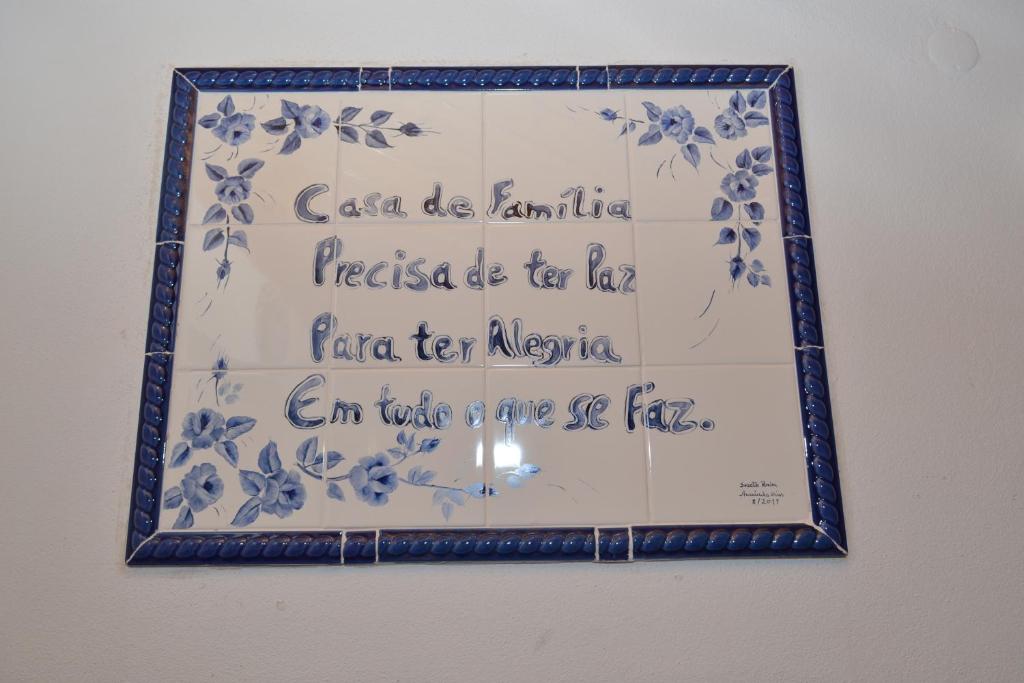 Casa de Família
Precisa de ter Paz
Para ter Alegria
Em tudo o que se Faz.
8/2011